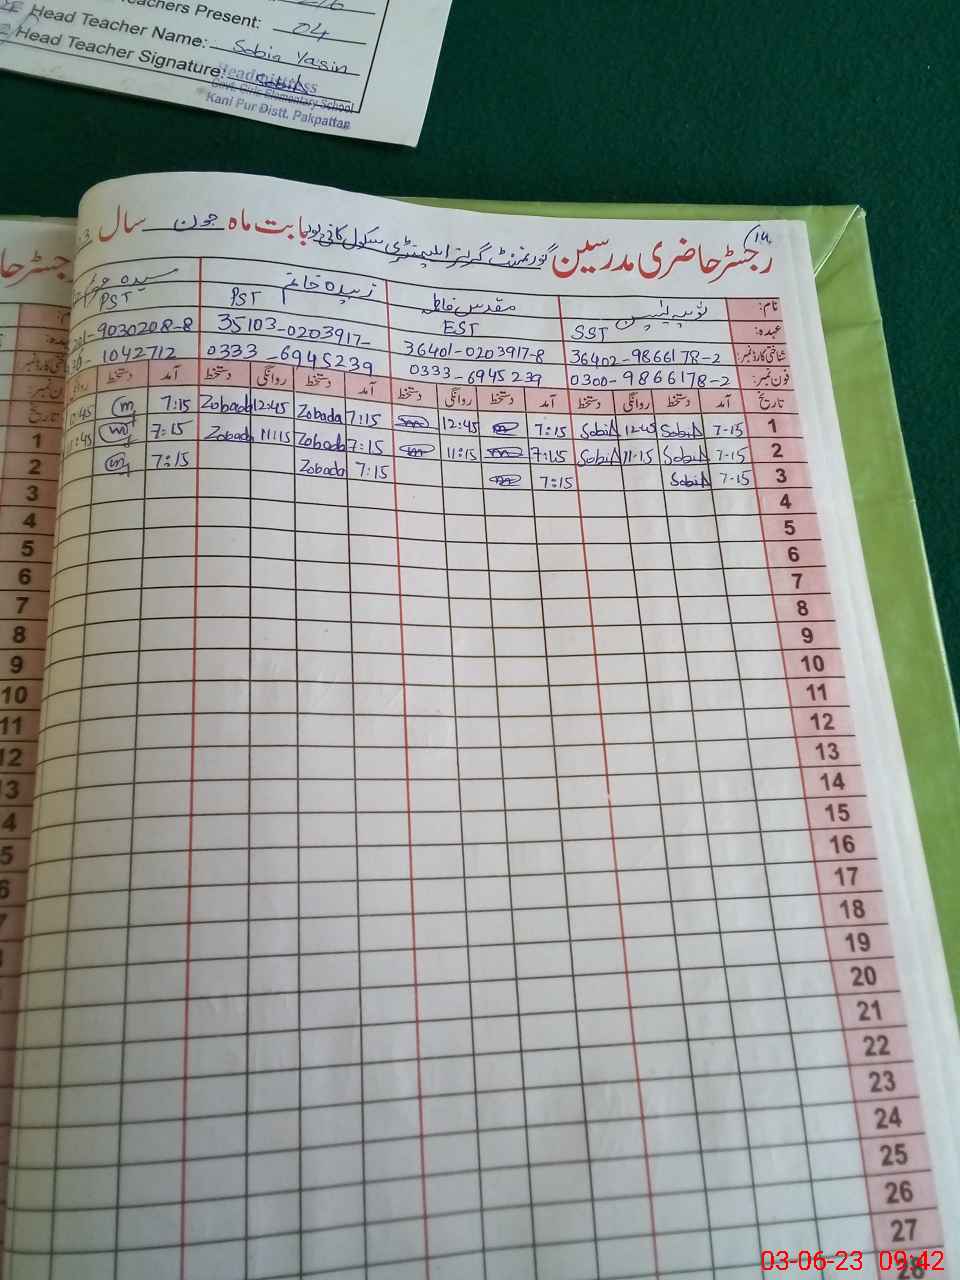 Teachers Present: 04
Head Teacher Name: Sobia Yasin
Head Teacher Signature: Sobia
Headmistress
Govt. Girls Elementary School
Kani Pur Distt. Pakpattan
رجسٹر حاضری مدرسین گورنمنٹ گرلز ایلیمنٹری سکول کانی پور بابت ماہ جون سال
نام: ثوبیہ یٰسین مقدس فاطمہ زبیدہ خانم سیدہ
عہدہ: SST EST PST PST
شناختی کارڈ نمبر: 36402-9866178-2 36401-0203917-8 35103-0203917- 9030208-8
فون نمبر: 0300-9866178-2 0333-6945239 0333-6945239 1042712
تاریخ آمد دستخط روانگی دستخط آمد دستخط روانگی دستخط آمد دستخط روانگی دستخط آمد دستخط روانگی
1 7-15 SobiA 12:45 SobiA 7:15 12:45 7:15 Zobada 12:45 Zobada 7:15
2 7-15 SobiA 11-15 SobiA 7:15 11:15 7:15 Zobada 11:15 Zobada 7:15
3 7-15 SobiA 7:15 7:15 Zobada 7:15
4
5
6
7
8
9
10
11
12
13
14
15
16
17
18
19
20
21
22
23
24
25
26
27
28
03-06-23 09:42